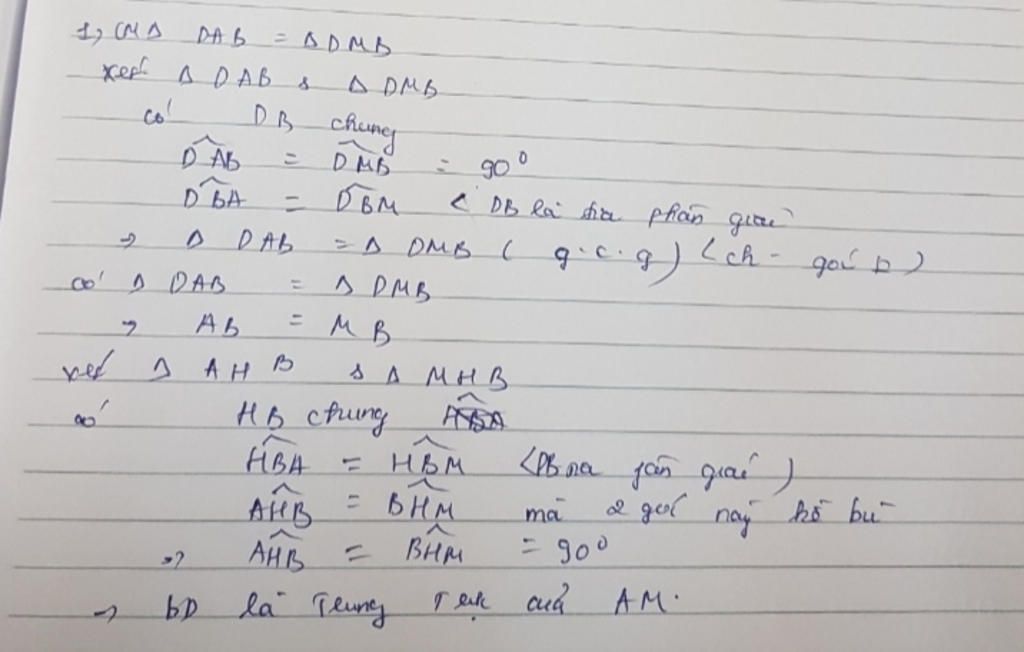 1, CM Δ DAB = Δ DMB
xét Δ DAB & Δ DMB
có DB chung
D̂AB = D̂MB = 90°
D̂BA = D̂BM < DB là tia phân giác
=> Δ DAB = Δ DMB ( g.c.g ) < ch - góc b )
có Δ DAB = Δ DMB
=> AB = MB
xét Δ AHB & Δ MHB
có HB chung
ĤBA = ĤBM < DB phân giác )
AĤB = BĤM mà 2 góc này kề bù
=> AĤB = BĤM = 90°
=> bD là Trung Trực của AM.